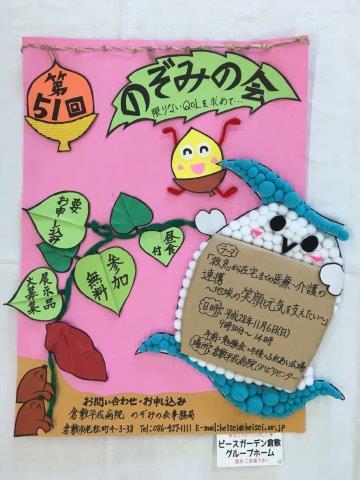 第
51回
のぞみの会
限りないQOLを求めて…
要
お申し込み
昼食
付
参加
無料
展示品
大募集
テーマ
「救急から在宅までの医療・介護の
連携
～地域の笑顔と元気を支えたい～」
日時:平成28年11月6日(日)
9時30分～14時
午前:勉強会・午後:ふれあい広場
場所:倉敷平成病院リハビリセンター
お問い合わせ・お申込み
倉敷平成病院 のぞみの会事務局
倉敷市老松町4-3-38 Tel:086-427-1111 E-mail:heisei@heisei.or.jp
ピースガーデン倉敷
グループホーム